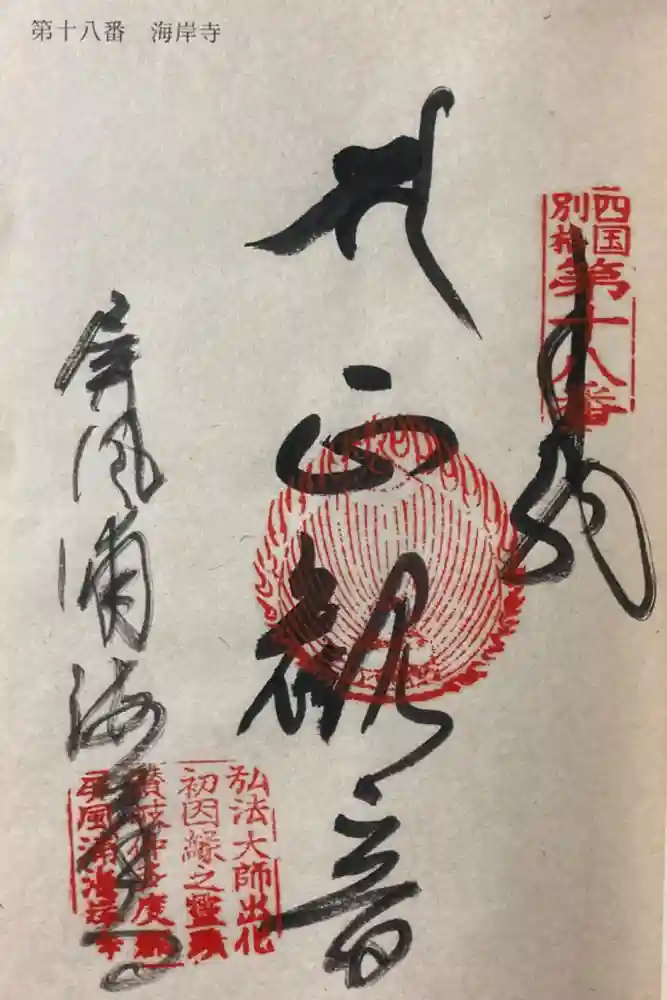 第十八番　海岸寺
四国
別格
第十八番
奉拝
正観音
屏風浦海岸寺
弘法大師出化
初因縁之霊跡
讃岐仲多度郡
屏風浦海岸寺